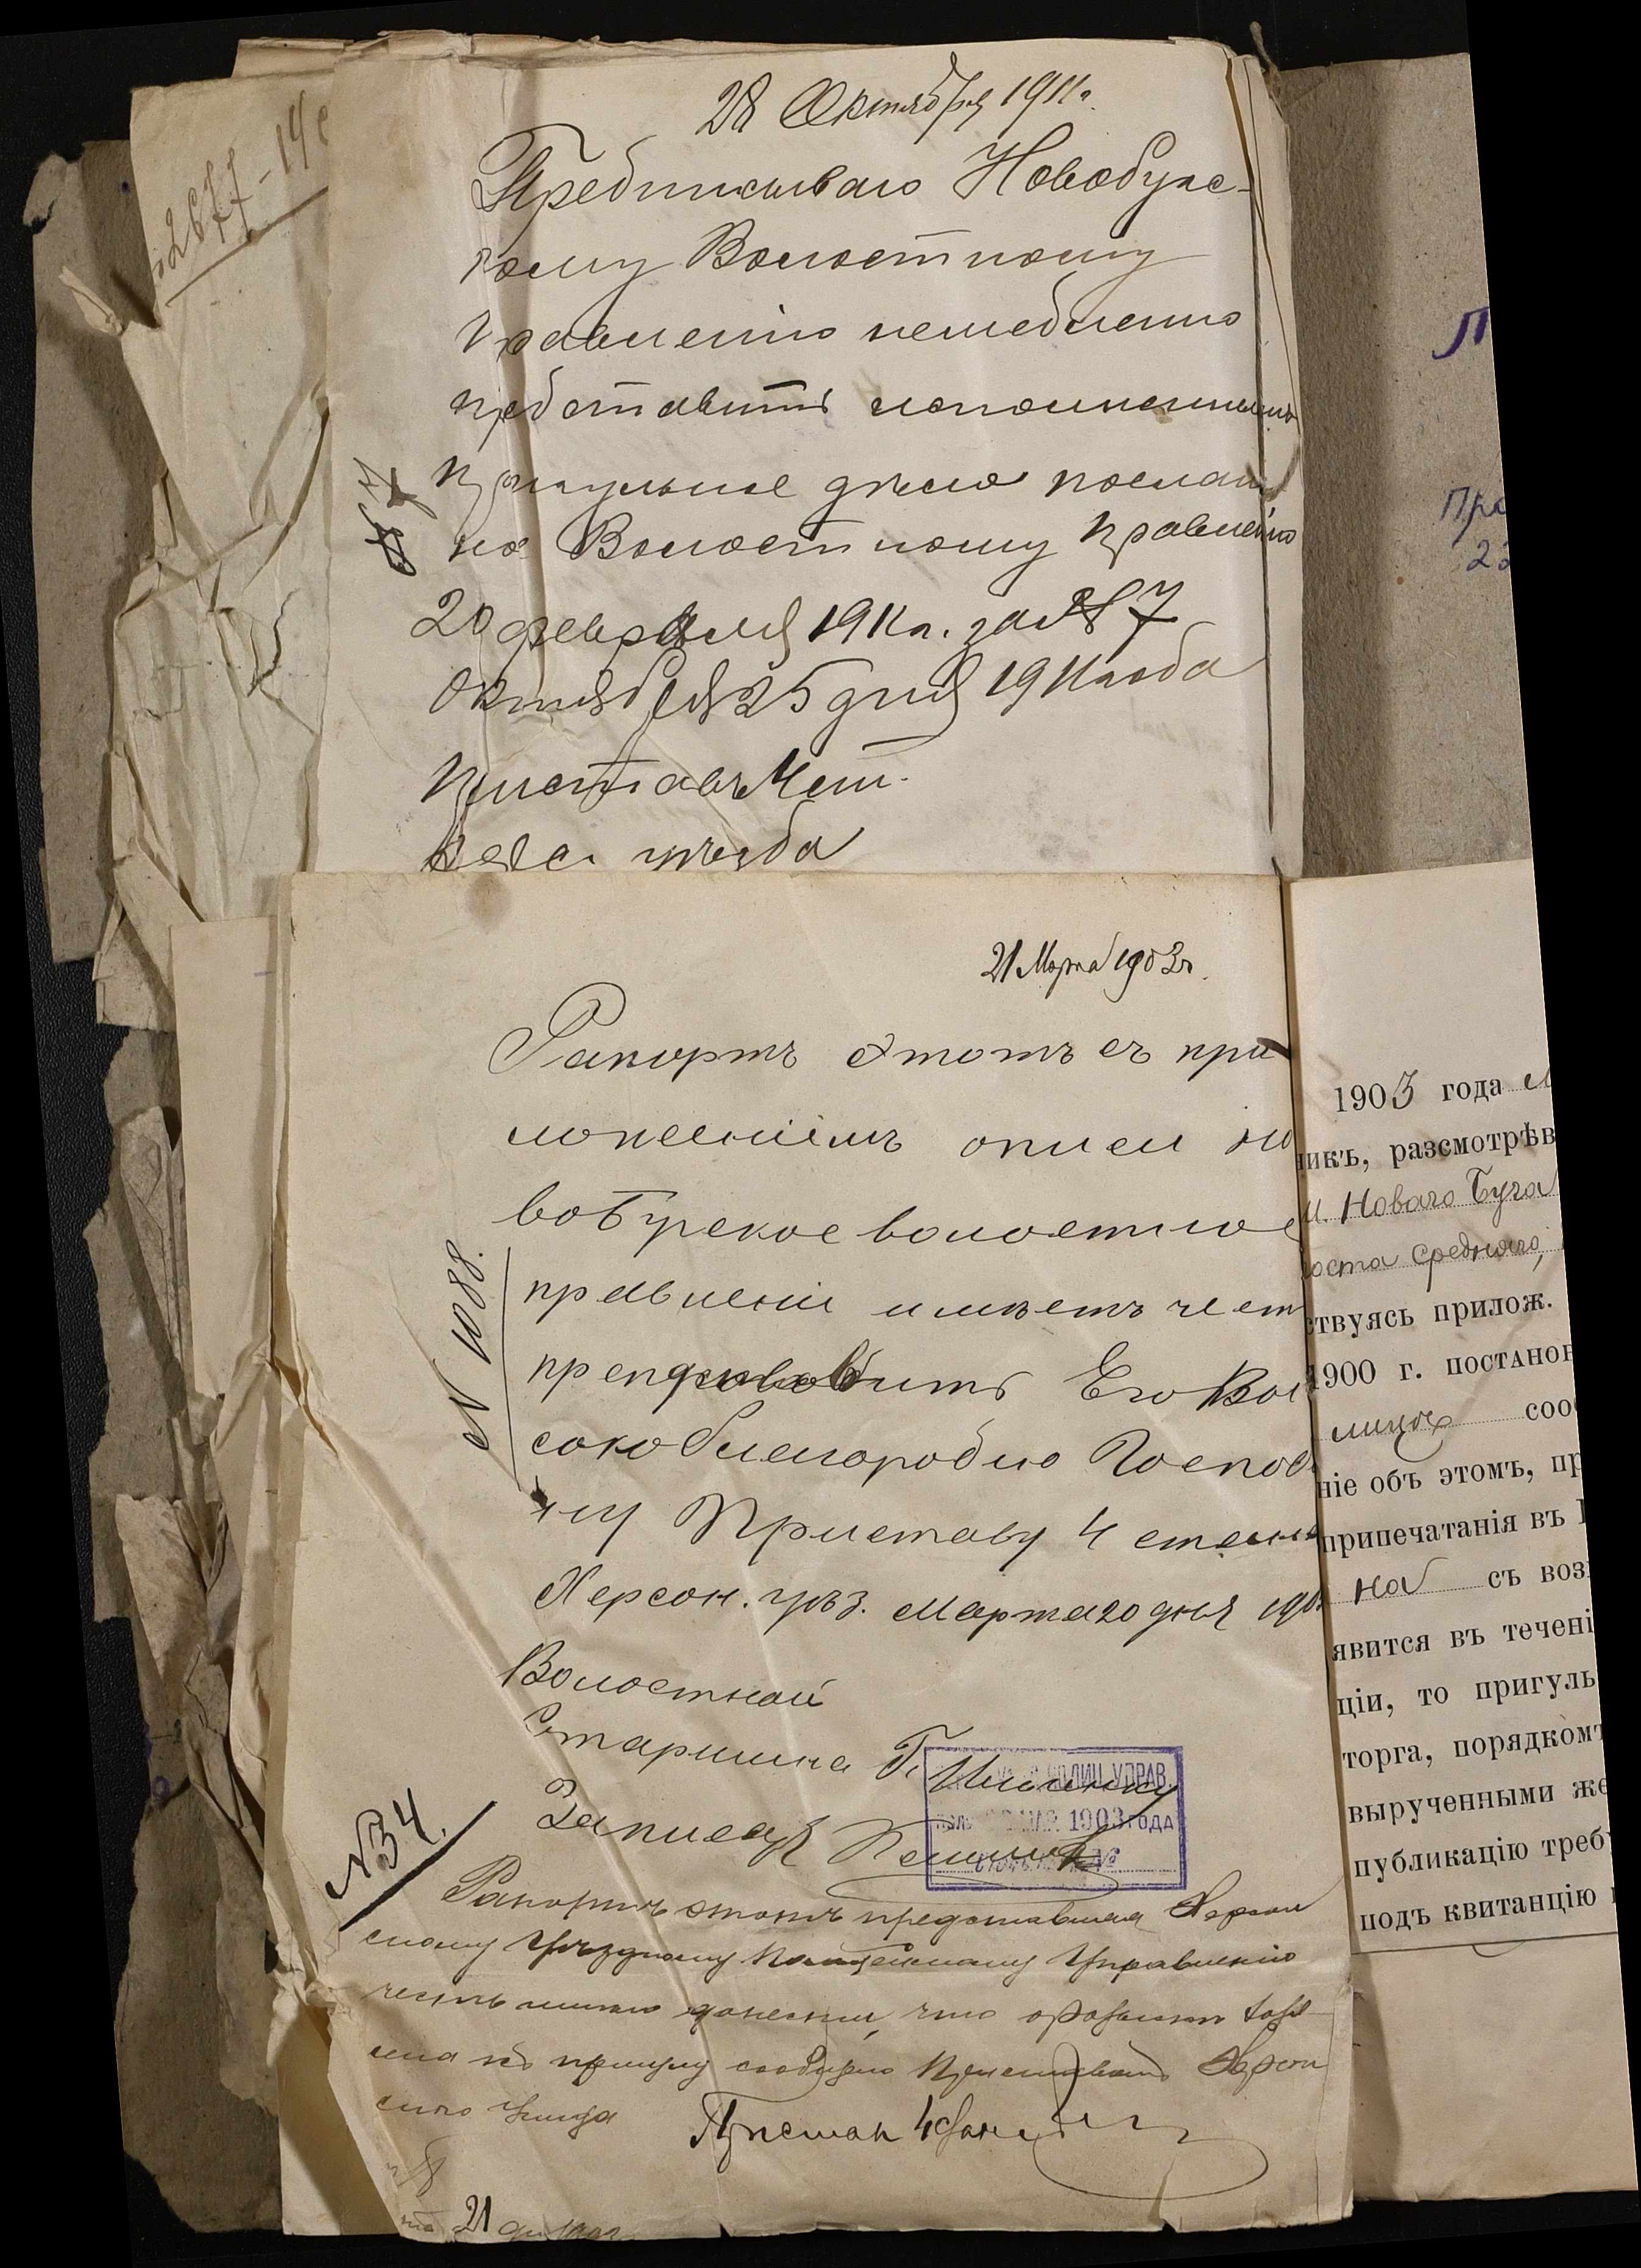 2677-14
28 Октября 1911 г.
Предписываю Новобугс-
кому Волостному
Правленію немедленно
представить исполненнымъ
пригульное дѣло послан
но Волостному правленію
20 февраля 1911 г. за № 7
Октября 25 дня 1911 года
Приставъ 4 ст.
уѣзда
П
Про
21 Марта 1903 г.
Рапортъ этотъ съ при
ложеніемъ описи Но
вобугское волостное
правленіе имѣетъ чест
препроводить Его Вы
сокоблагородію Господ
ну Приставу 4 стана
Херсон. уѣз. Марта 20 дня 190
N 1088.
Волостной
Старшина
Записалъ
ПОЛИЦ. УПРАВ.
МАР. 1903 ГОДА
№
№34.
Рапортъ этотъ представляя Херсон
скому Уѣздному Полицейскому Управленію
честь имѣю донести, что
сообщено Приставамъ Херсон
скаго уѣзда
Приставъ 4
21
1903 года
никъ, разсмотрѣв
м. Новаго Буга
роста средняго,
ствуясь прилож.
1900 г. постанов
лицъ соо
ніе объ этомъ, пр
припечатанія въ
на съ воз
явится въ течені
ціи, то пригуль
торга, порядкомъ
вырученными же
публикацію треб
подъ квитанцію